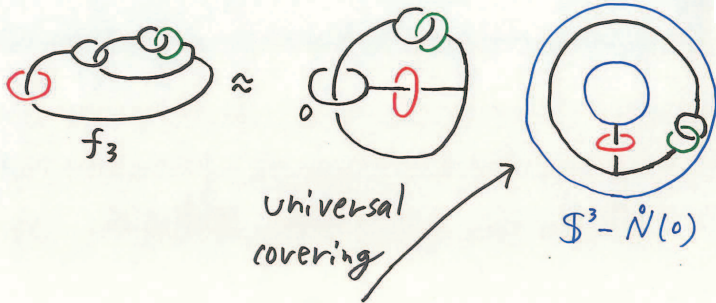 ≈
f₃
o
universal
covering
$³ - N̊(o)